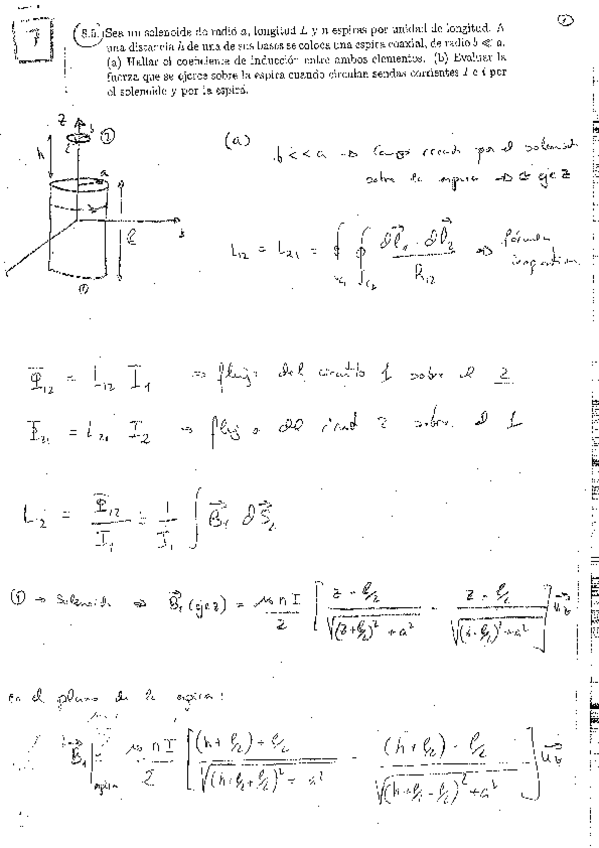 8.5. Sea un solenoide de radio a, longitud L y n espiras por unidad de longitud. A
una distancia h de una de sus bases se coloca una espira coaxial, de radio b ≪ a.
(a) Hallar el coeficiente de inducción entre ambos elementos. (b) Evaluar la
fuerza que se ejerce sobre la espira cuando circulan sendas corrientes I e i por
el solenoide y por la espira.
(a) b << a ⇒ Campo creado por el solenoide
sobre la espira ⇒ ≅ eje z
L12 = L21 = ∮c1 ∮c2 dl1 · dl2 / R12 ⇒ fórmula
Φ12 = L12 I1 ⇒ flujo del circuito 1 sobre el 2
Φ21 = L21 I2 ⇒ flujo del circuit 2 sobre el 1
L12 = Φ12 / I1 = 1 / I1 ∫ B1 dS2
① → Solenoide ⇒ B1 (eje z) = μo n I / 2 [ z + l/2 / √((z + l/2)² + a²) - z - l/2 / √((z - l/2)² + a²) ] uz
en el plano de la espira:
B1 | espira = μo n I / 2 [ (h + l/2) + l/2 / √((h + l/2 + l/2)² + a²) - (h + l/2) - l/2 / √((h + l/2 - l/2)² + a²) ] uz